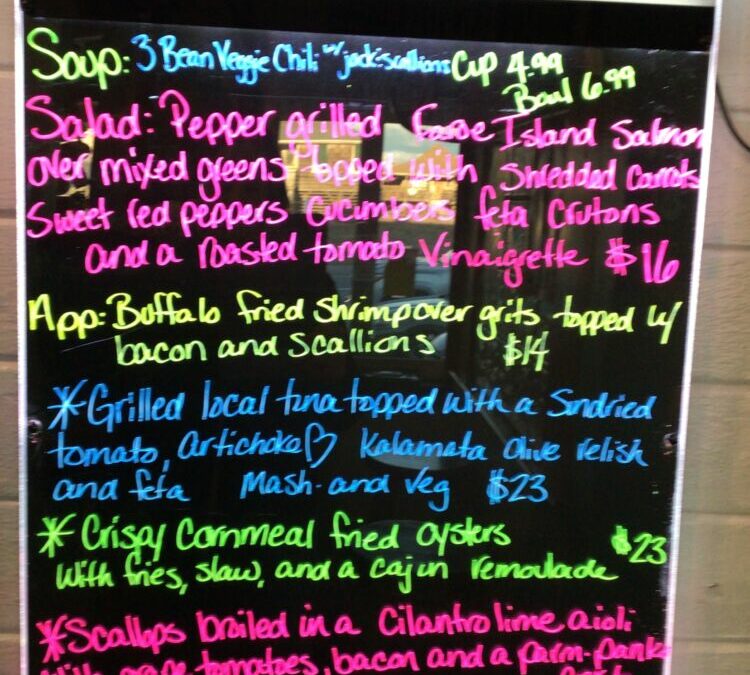 Soup: 3 Bean Veggie Chili w/ jack-scallions Cup 4.99
Bowl 6.99
Salad: Pepper grilled Faroe Island Salmon
over mixed greens topped with Shredded Carrots
Sweet red peppers Cucumbers feta Crutons
and a roasted tomato Vinaigrette $16
App: Buffalo fried shrimp over grits topped w/
bacon and scallions $14
*Grilled local tuna topped with a Sundried
tomato, artichoke Kalamata olive relish
and feta Mash and veg $23
*Crispy Cornmeal fried oysters $23
With fries, slaw, and a cajun remoulade
*Scallops broiled in a Cilantro lime aioli
with grape tomatoes, bacon and a parm-panko